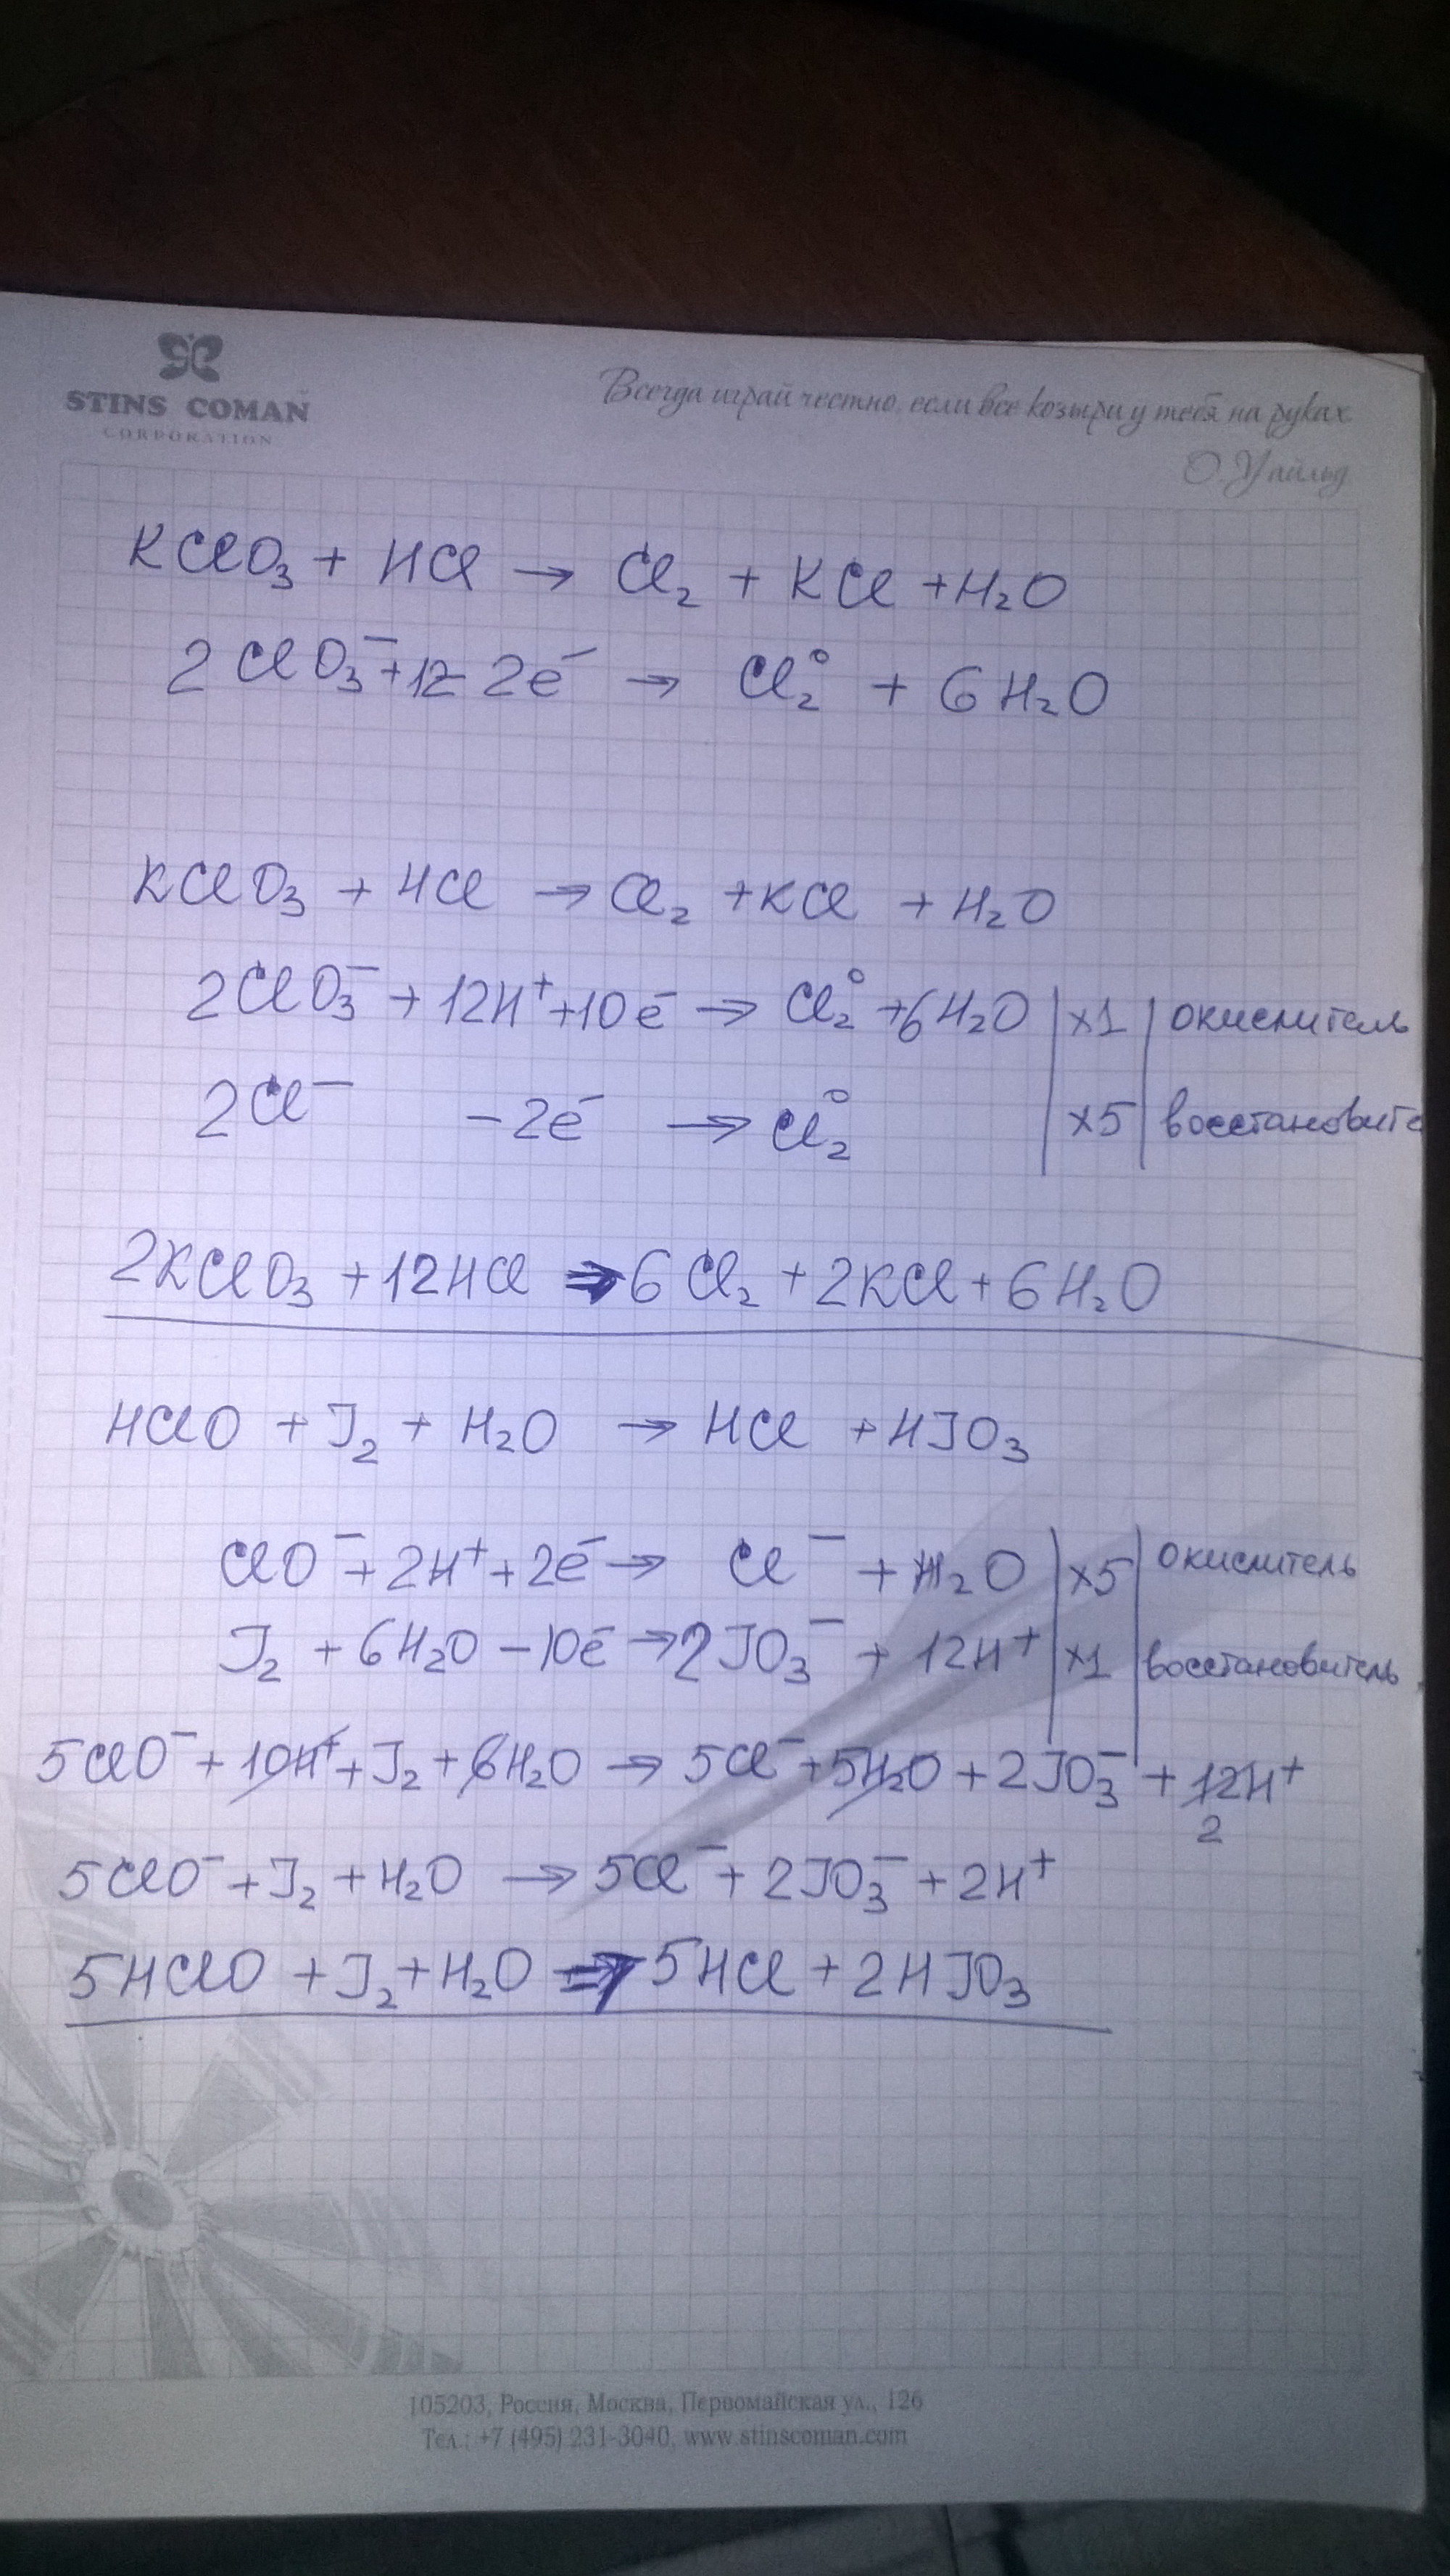 STINS COMAN
CORPORATION
Всегда играй честно, если все козыри у тебя на руках
О. Уайльд
KClO₃ + HCl → Cl₂ + KCl + H₂O
2ClO₃⁻ + 12 2e⁻ → Cl₂⁰ + 6H₂O
KClO₃ + HCl → Cl₂ + KCl + H₂O
2ClO₃⁻ + 12H⁺ + 10e⁻ → Cl₂⁰ + 6H₂O | ×1 | окислитель
2Cl⁻ - 2e⁻ → Cl₂⁰ | ×5 | восстановите
2KClO₃ + 12HCl ⇒ 6Cl₂ + 2KCl + 6H₂O
HClO + J₂ + H₂O → HCl + HJO₃
ClO⁻ + 2H⁺ + 2e⁻ → Cl⁻ + H₂O | ×5 | окислитель
J₂ + 6H₂O - 10e⁻ → 2JO₃⁻ + 12H⁺ | ×1 | восстановитель
5ClO⁻ + 10H⁺ + J₂ + 6H₂O → 5Cl⁻ + 5H₂O + 2JO₃⁻ + 12H⁺
2
5ClO⁻ + J₂ + H₂O → 5Cl⁻ + 2JO₃⁻ + 2H⁺
5HClO + J₂ + H₂O ⇒ 5HCl + 2HJO₃
105203, Россия, Москва, Первомайская ул., 126
Тел.: +7 (495) 231-3040, www.stinscoman.com